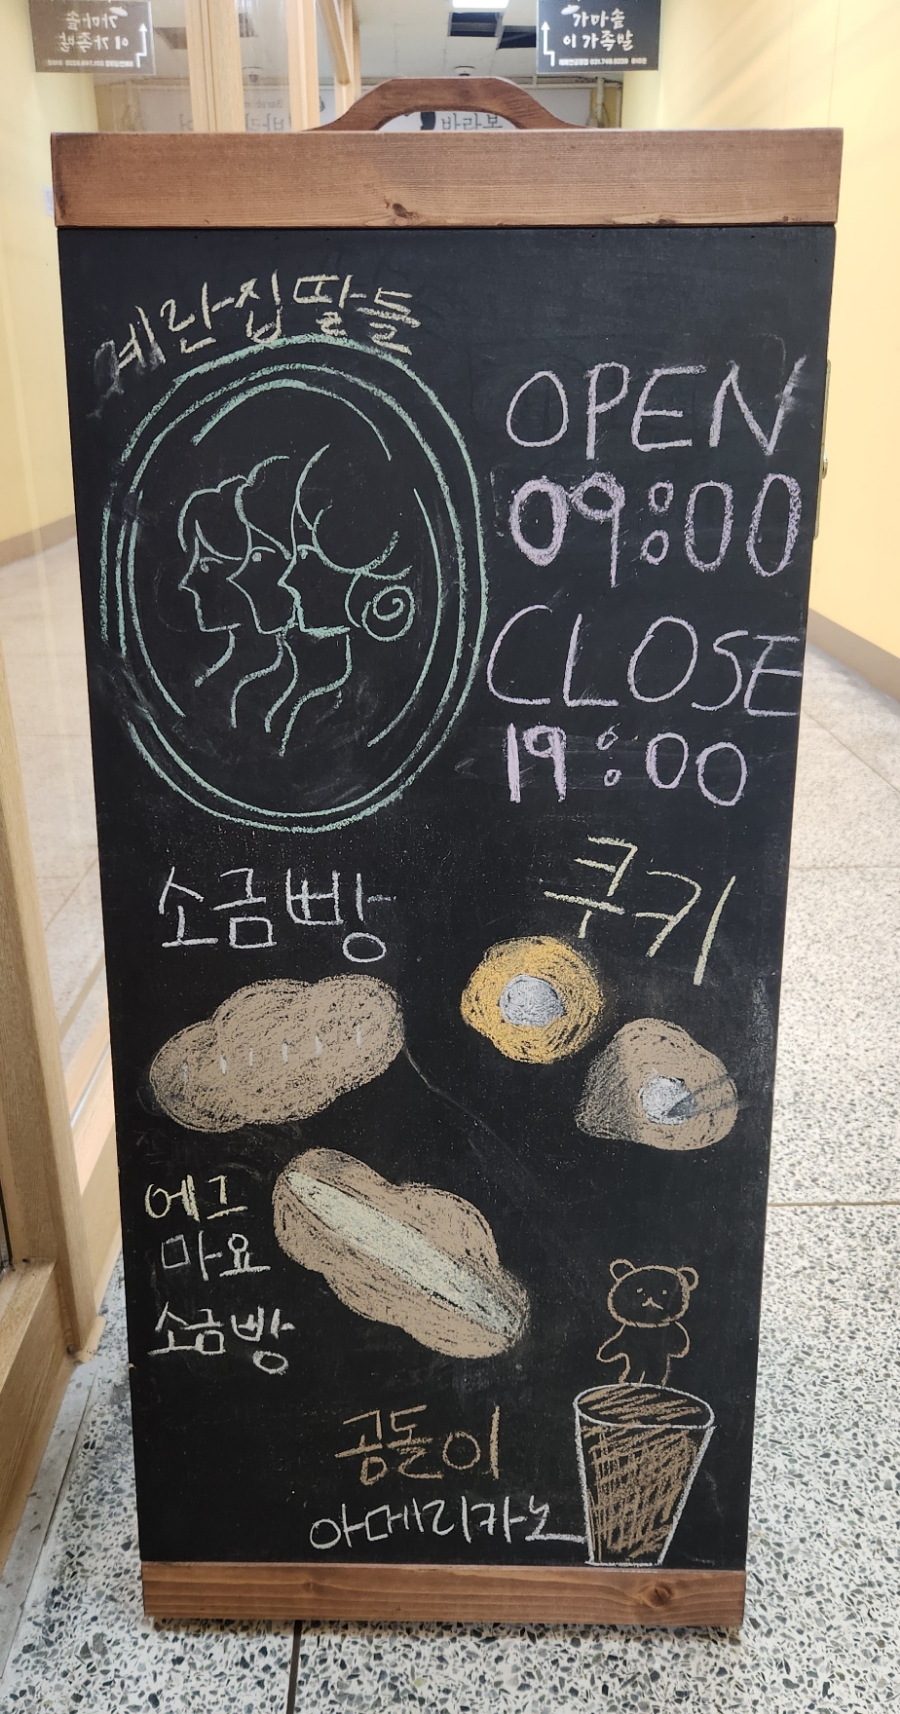 가마솥
이 가족발
바라봄
계란집딸들
OPEN
09:00
CLOSE
19:00
소금빵
쿠키
에그
마요
소금빵
곰돌이
아메리카노